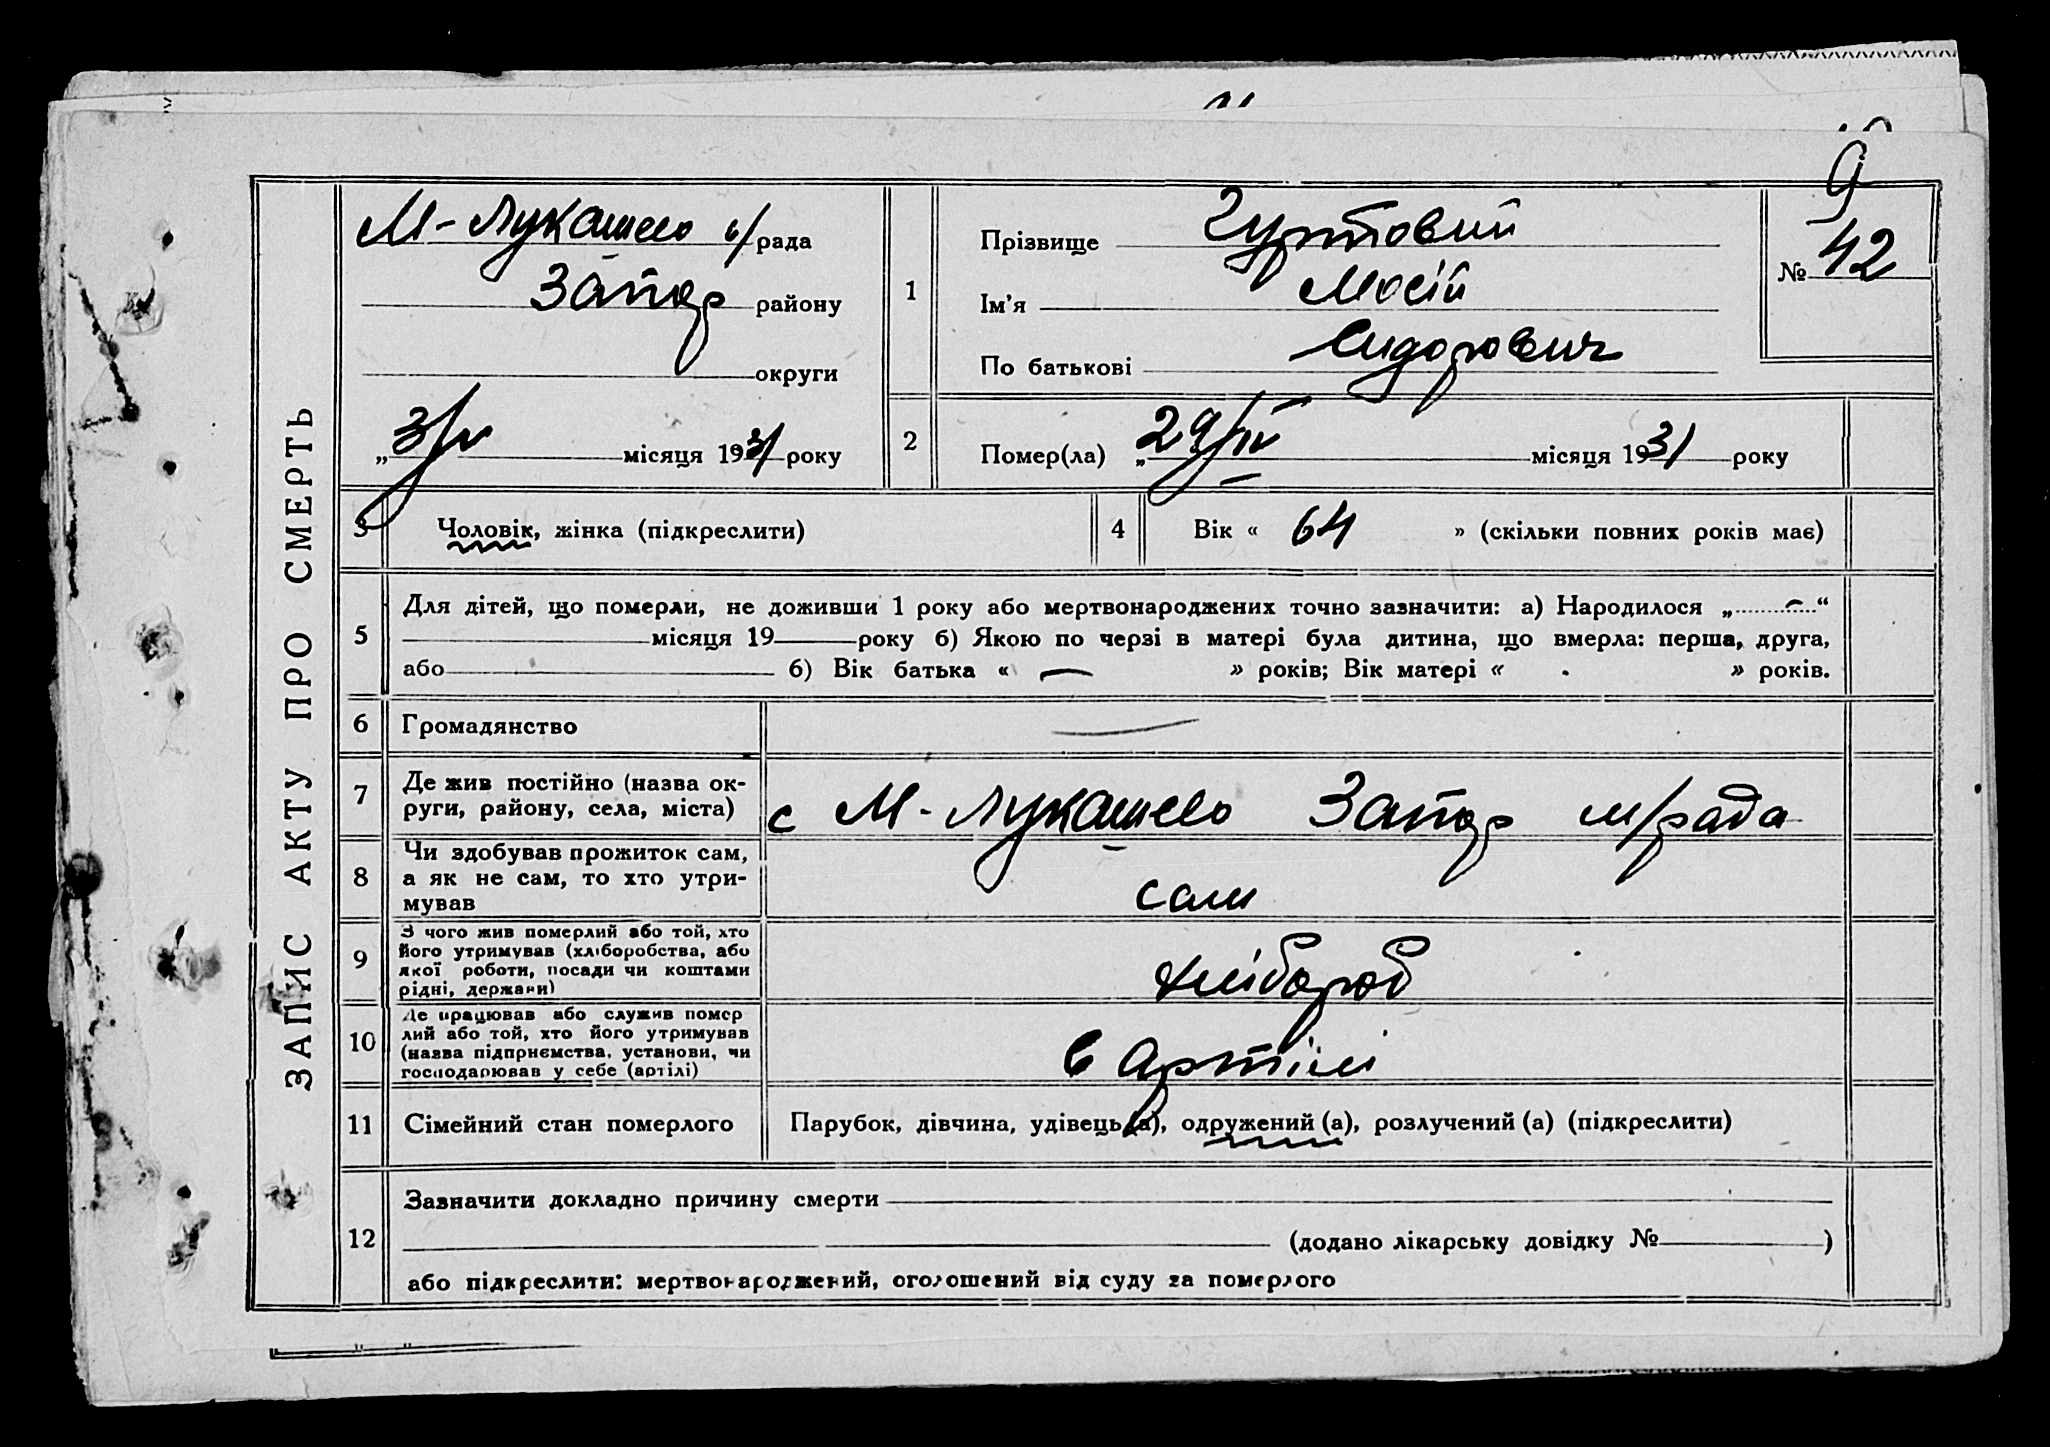 ЗАПИС АКТУ ПРО СМЕРТЬ
9
М-Лукашево с/рада
Запор району
округи
„3/V місяця 1931 року
1
Прізвище Гуртовий
Ім’я Мосій
По батькові Сидорович
№ 42
2
Помер(ла) „29/IV місяця 1931 року
3 Чоловік, жінка (підкреслити)
4 Вік « 64 » (скільки повних років має)
5
Для дітей, що померли, не доживши 1 року або мертвонароджених точно зазначити: а) Народилося „ — “
місяця 19 року б) Якою по черзі в матері була дитина, що вмерла: перша, друга,
або б) Вік батька « — » років; Вік матері « » років.
6 Громадянство —
7 Де жив постійно (назва ок-
руги, району, села, міста)
с М-Лукашево Запор м/рада
8 Чи здобував прожиток сам,
а як не сам, то хто утри-
мував
сам
9 З чого жив померлий або той, хто
його утримував (хліборобства, або
якої роботи, посади чи коштами
рідні, держави)
хлібороб
10 Де працював або служив помер
лий або той, хто його утримував
(назва підприємства, установи, чи
господарював у себе (артілі)
в артілі
11 Сімейний стан померлого Парубок, дівчина, удівець (а), одружений (а), розлучений (а) (підкреслити)
12
Зазначити докладно причину смерти
(додано лікарську довідку № )
або підкреслити: мертвонароджений, оголошений від суду за померлого